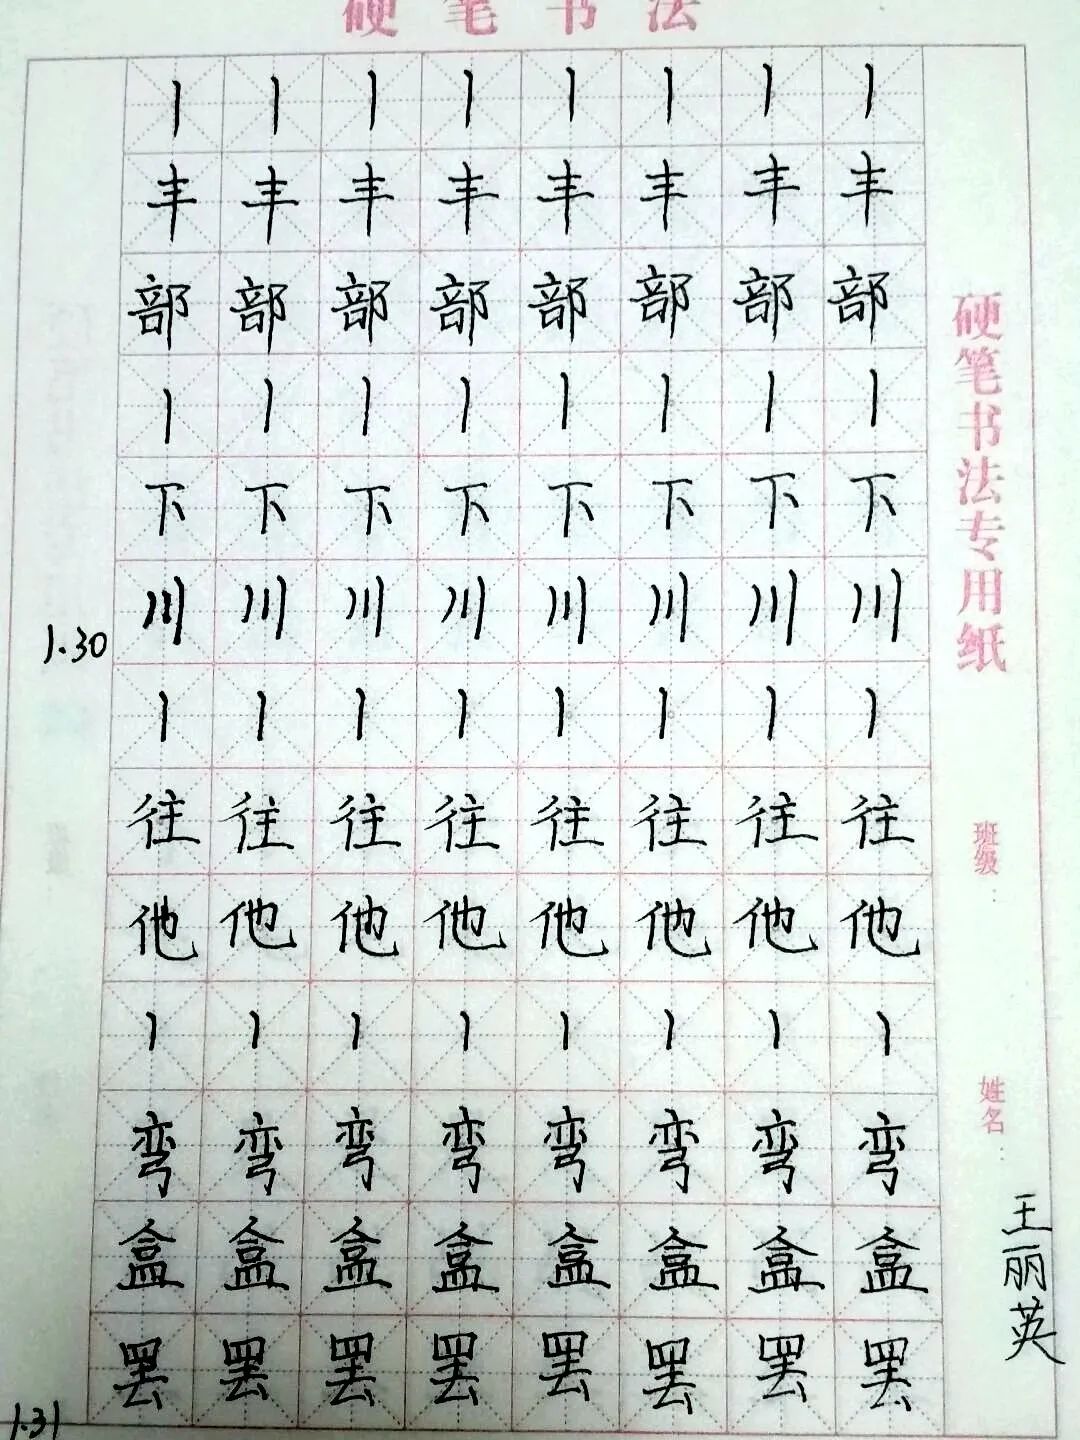 硬笔书法
丨丨丨丨丨丨丨丨
丰丰丰丰丰丰丰丰
部部部部部部部部
丨丨丨丨丨丨丨丨
下下下下下下下下
川川川川川川川川
1.30
丨丨丨丨丨丨丨丨
往往往往往往往往
他他他他他他他他
丨丨丨丨丨丨丨丨
弯弯弯弯弯弯弯弯
盒盒盒盒盒盒盒盒
罢罢罢罢罢罢罢罢
1.31
硬笔书法专用纸
班级:
姓名:
王丽英